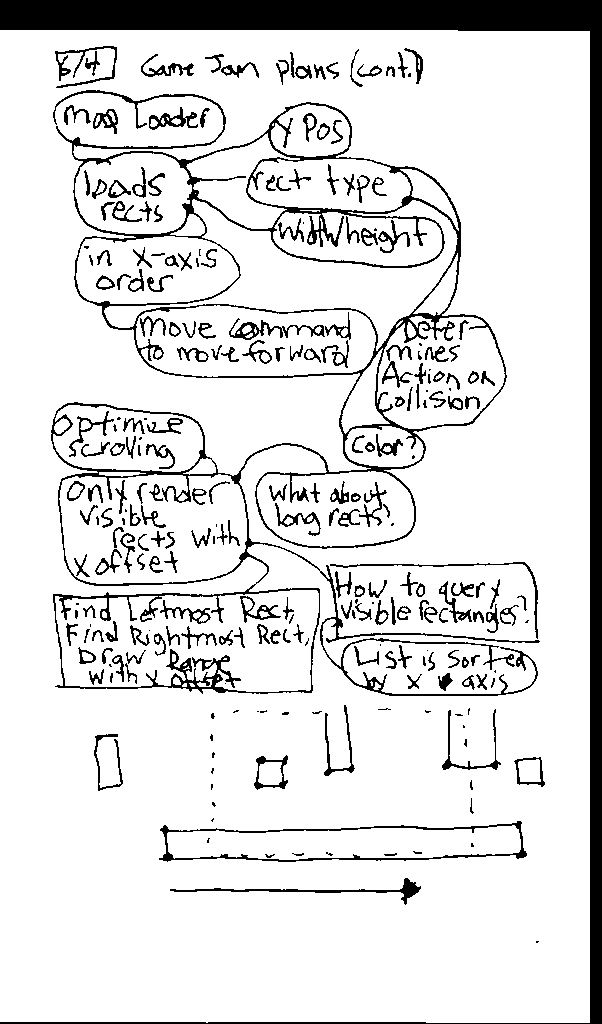 6/4 Game Jam plans (cont.)
Map Loader
Y Pos
loads
rects
rect type
width/height
in x-axis
order
move command
to move forward
Deter-
mines
Action on
Collision
Color?
Optimize
scrolling
Only render
visible
rects with
x offset
What about
long rects?
How to query
visible rectangles?
Find Leftmost Rect,
Find Rightmost Rect,
Draw Range
with x offset
List is sorted
by x axis